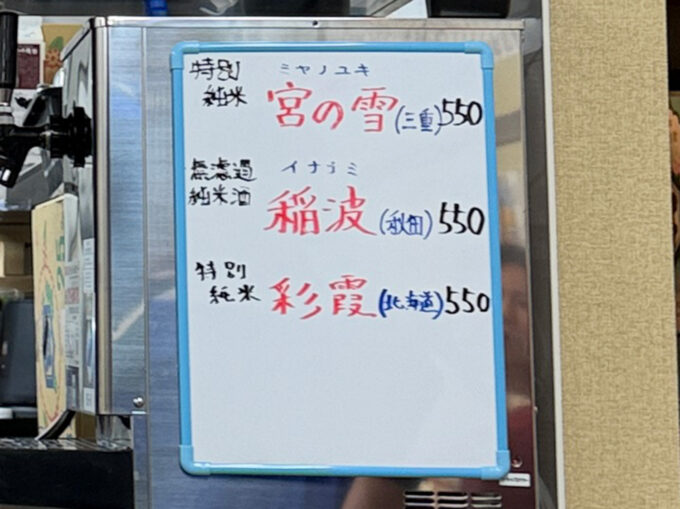 特別 ミヤノユキ
純米 宮の雪(三重)550
無濾過 イナナミ
純米酒 稲波(秋田)550
特別
純米 彩霞(北海道)550